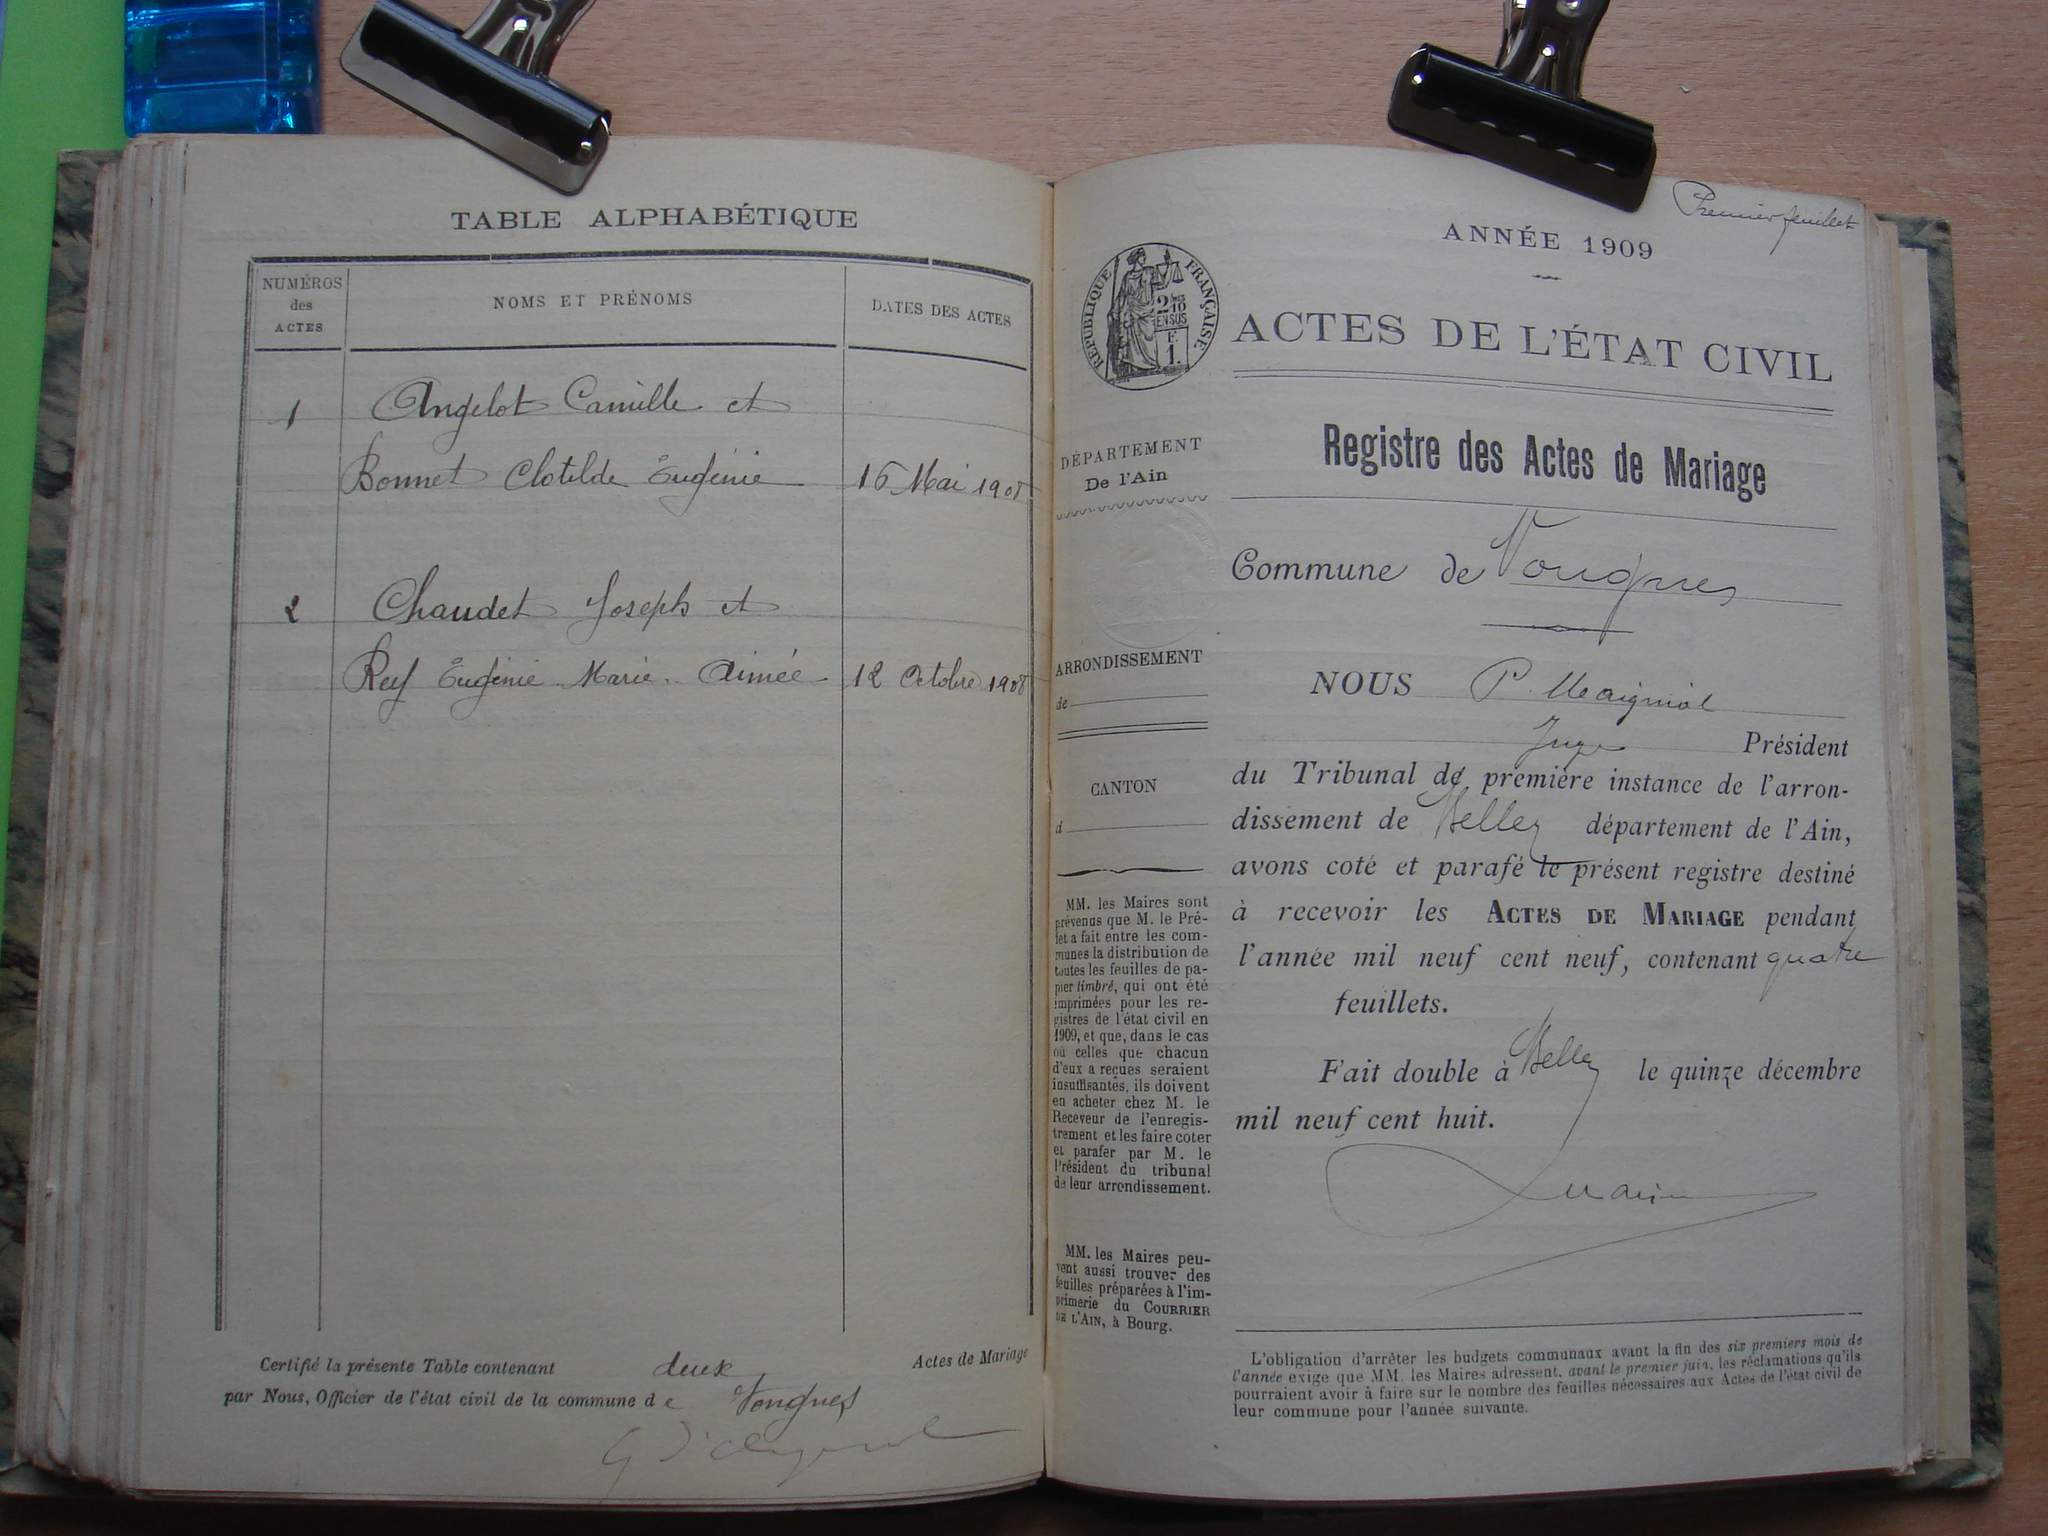 TABLE ALPHABÉTIQUE
NUMÉROS
des
ACTES
NOMS ET PRÉNOMS
DATES DES ACTES
1 Angelot Camille et
Bonnet Clotilde Eugénie 16 Mai 1908
2 Chaudet Joseph et
Rey Eugénie Marie Aimée 12 Octobre 1908
Certifié la présente Table contenant deux Actes de Mariage
par Nous, Officier de l'état civil de la commune de Vongnes
Premier feuillet
ANNÉE 1909
RÉPUBLIQUE FRANÇAISE
2/10
EN SUS
1F.
ACTES DE L'ÉTAT CIVIL
DÉPARTEMENT
De l'Ain
ARRONDISSEMENT
de
CANTON
d
MM. les Maires sont
prévenus que M. le Pré-
fet a fait entre les com-
munes la distribution de
toutes les feuilles de pa-
pier timbré, qui ont été
imprimées pour les re-
gistres de l'état civil en
1909, et que, dans le cas
où celles que chacun
d'eux a reçues seraient
insuffisantes, ils doivent
en acheter chez M. le
Receveur de l'enregis-
trement et les faire coter
et parafer par M. le
Président du tribunal
de leur arrondissement.
MM. les Maires peu-
vent aussi trouver des
feuilles préparées à l'im-
primerie du COURRIER
DE L'AIN, à Bourg.
Registre des Actes de Mariage
Commune de Vongnes
NOUS P. Maigniol
Juge Président
du Tribunal de première instance de l'arron-
dissement de Belley département de l'Ain,
avons coté et parafé le présent registre destiné
à recevoir les ACTES DE MARIAGE pendant
l'année mil neuf cent neuf, contenant quatre
feuillets.
Fait double à Belley le quinze décembre
mil neuf cent huit.
L'obligation d'arrêter les budgets communaux avant la fin des six premiers mois de
l'année exige que MM. les Maires adressent, avant le premier juin, les réclamations qu'ils
pourraient avoir à faire sur le nombre des feuilles nécessaires aux Actes de l'état civil de
leur commune pour l'année suivante.